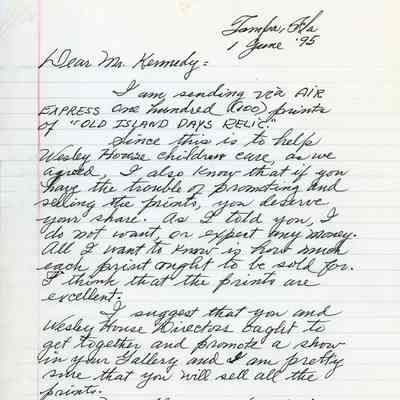 Tampa, Fla
1 June '95
Dear Mr. Kennedy:
I am sending via AIR
EXPRESS one hundred (100) prints
of "OLD ISLAND DAYS RELIC."
Since this is to help
Wesley House children care, as we
agreed, I also know that if you
have the trouble of promoting and
selling the prints, you deserve
your share. As I told you, I
do not want, or expect any money.
All I want to know is how much
each print ought to be sold for.
I think that the prints are
excellent.
I suggest that you and
Wesley House Directors ought to
get together and promote a show
in your Gallery and I am pretty
sure that you will sell all the
prints.